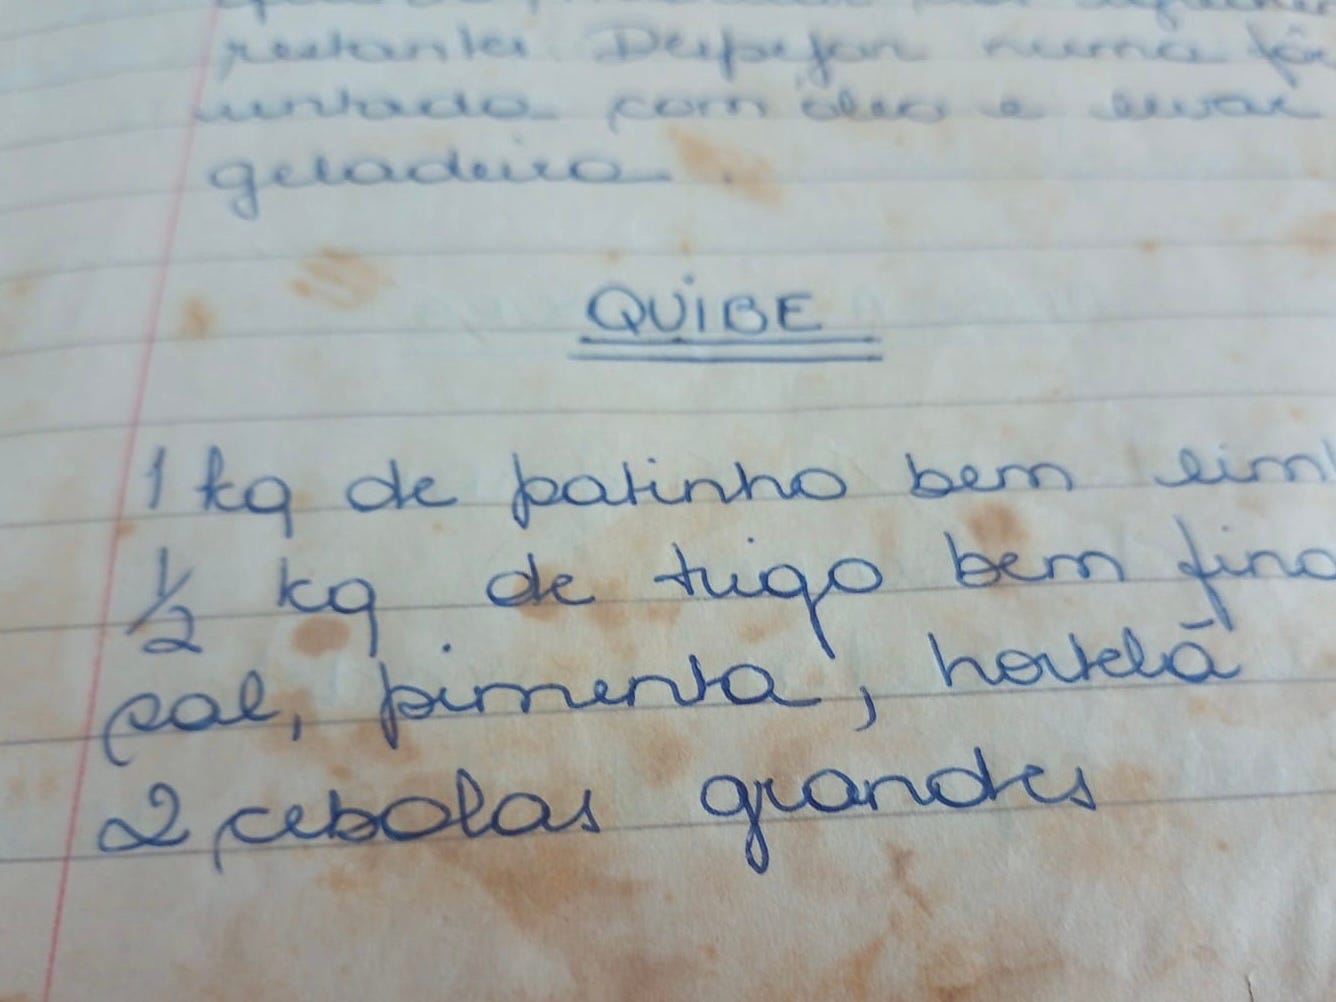 restantes Despejar numa fôr
untada com óleo e levar
geladeira.
QUIBE
1 kg de patinho bem lim
1/2 kg de trigo bem fino
sal, pimenta, hortelã
2 cebolas grandes